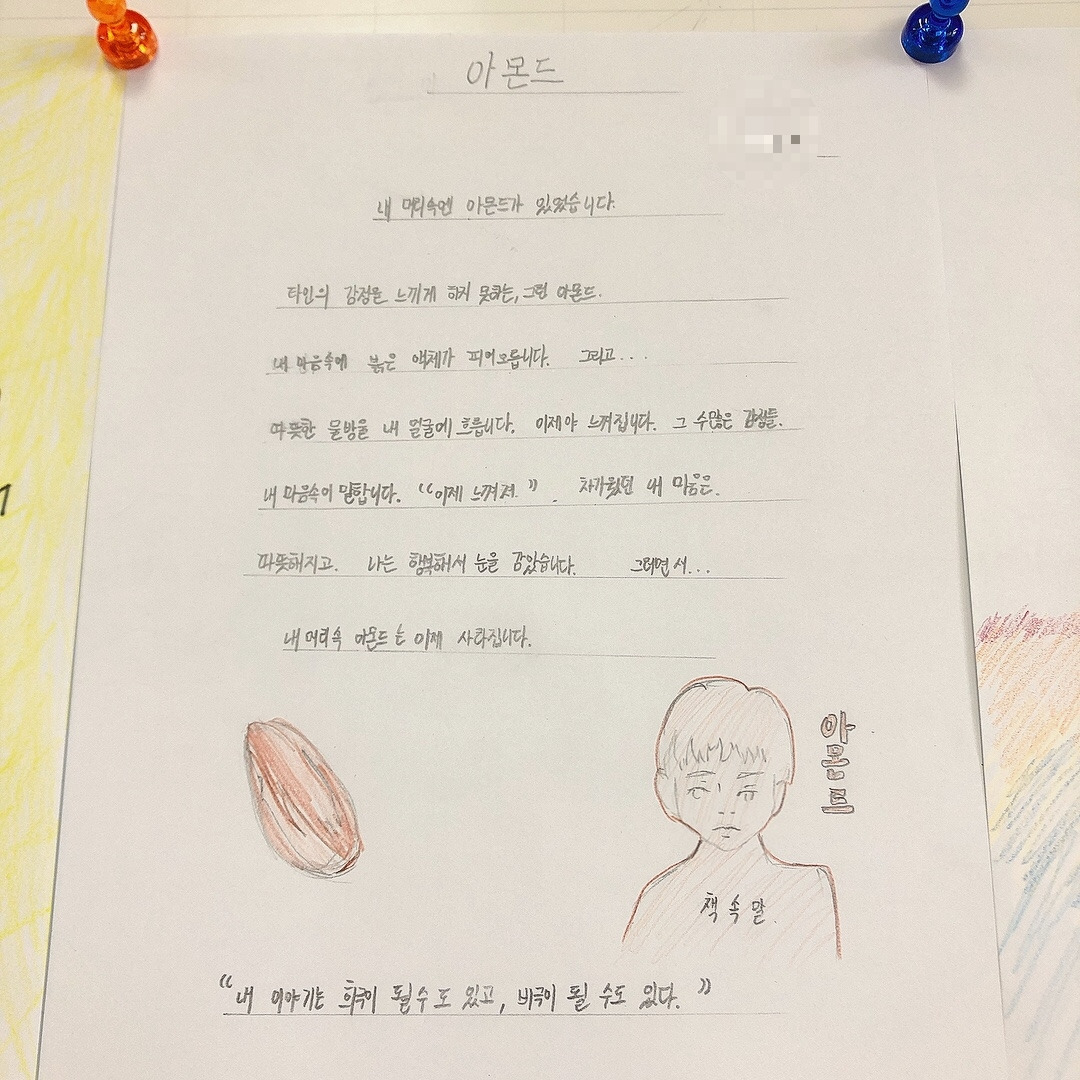 아몬드
내 머리속엔 아몬드가 있었습니다.
타인의 감정을 느끼게 하지 못하는, 그런 아몬드.
내 마음속에 붉은 액체가 피어오릅니다. 그리고...
따뜻한 물방울 내 얼굴에 흐릅니다. 이제야 느껴집니다. 그 수많은 감정들.
내 마음속이 말합니다. “이제 느껴져.”. 차가웠던 내 마음은.
따뜻해지고. 나는 행복해서 눈을 감았습니다. 그러면서...
내 머리속 아몬드는 이제 사라집니다.
아몬드
책 속 말.
“내 이야기는 희극이 될 수도 있고, 비극이 될 수도 있다.”